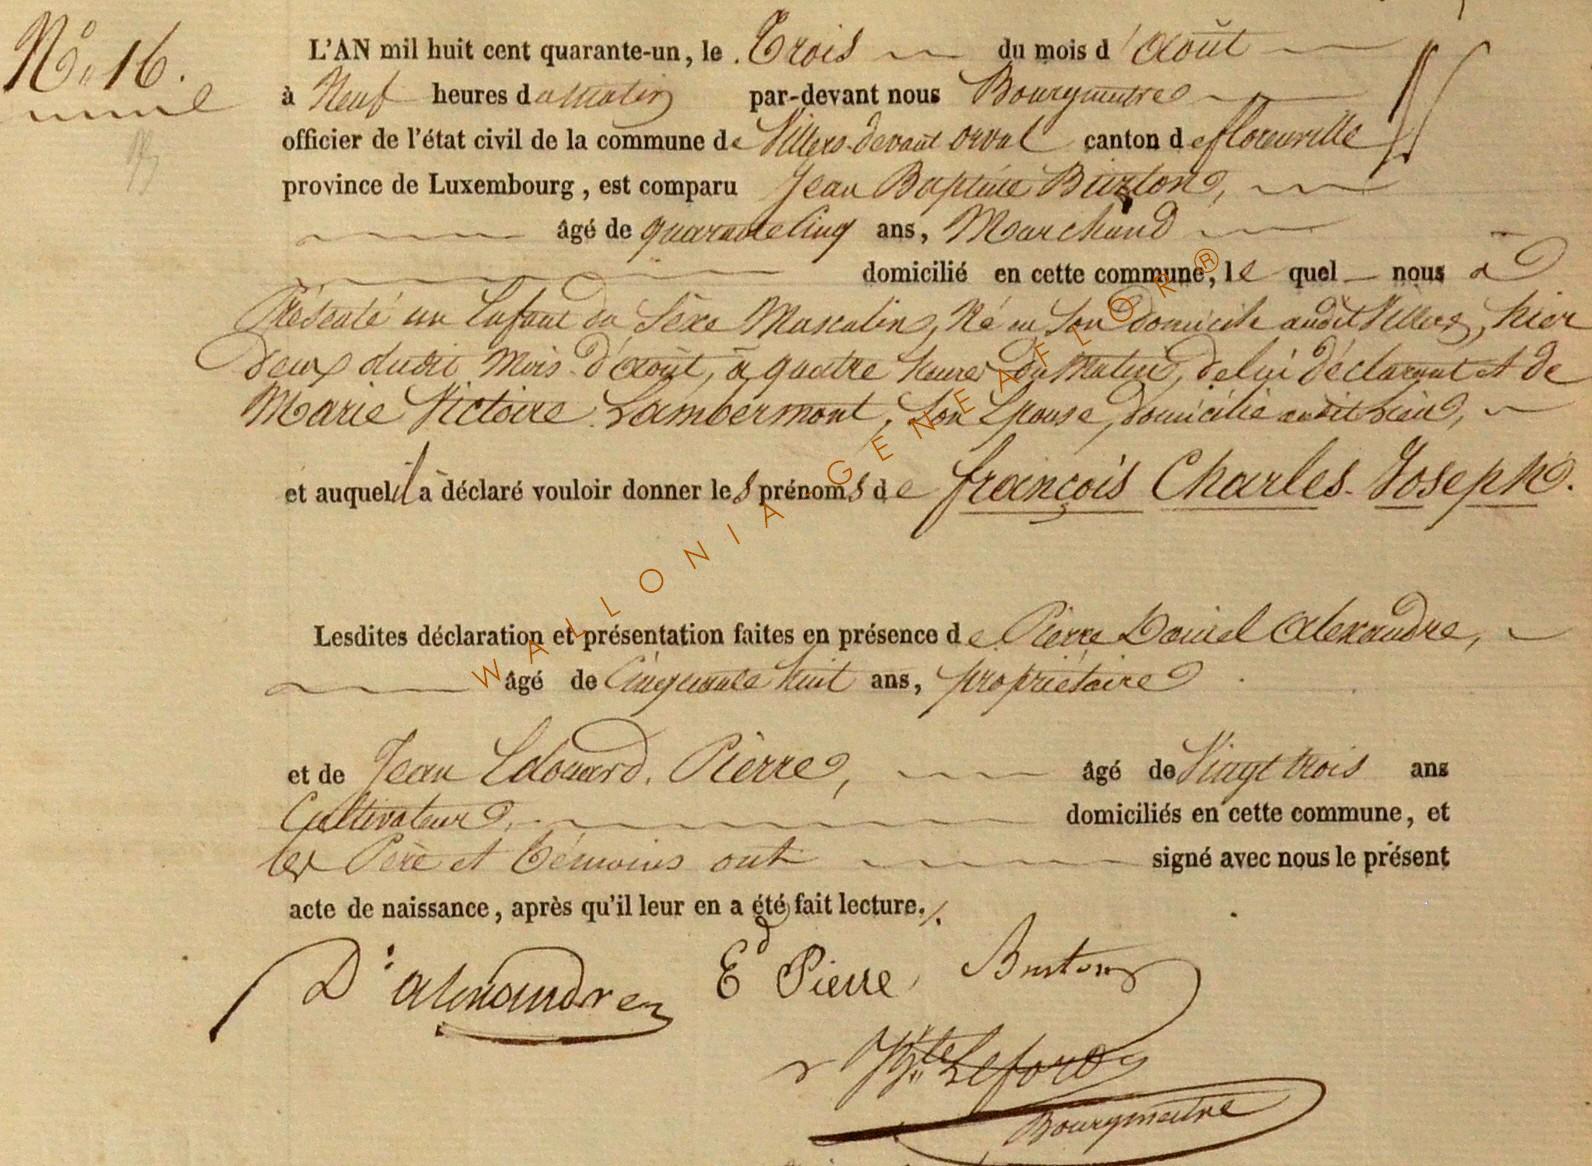 N°. 16.
L'AN mil huit cent quarante-un, le Trois du mois d'août
à Neuf heures du matin par-devant nous Bourgmestre
officier de l'état civil de la commune de Villers-devant orval canton de florenville
province de Luxembourg, est comparu Jean Baptiste Burton,
âgé de quarante Cinq ans, Marchand
domicilié en cette commune, le quel nous a
Présenté un Enfant du Sèxe Masculin, Né en Son domicile audit Villers, hier
deux dudit Mois d'août, à quatre heures du Matin, de lui déclarant et de
Marie Victoire Lambermont, Son Epouse, domicilié audit Lieu,
et auquel il a déclaré vouloir donner les prénoms de françois Charles Joseph.
Lesdites déclaration et présentation faites en présence de Pierre Daniel alexandre,
âgé de Cinquante huit ans, propriétaire
et de Jean Edouard Pierre, âgé de Vingt trois ans
Cultivateur, domiciliés en cette commune, et
les Père et témoins ont signé avec nous le présent
acte de naissance, après qu'il leur en a été fait lecture.
D. alexandre Ed Pierre Burton
Bourgmestre
WALLONIA GENEAFLOR ®